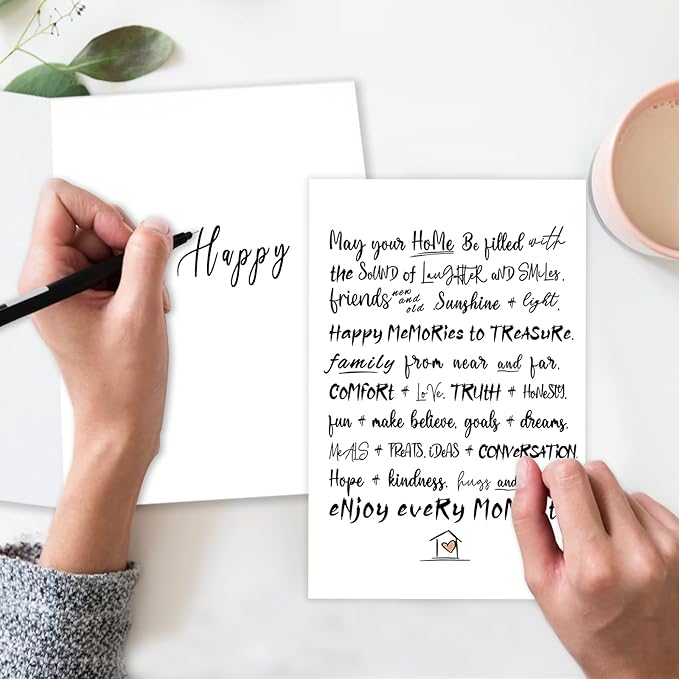 Happy
May your HoMe Be filled with
the SoUND of LaugHTeR aND SMiLes.
friends new and old. Sunshine + light.
Happy MeMoRies to TReaSuRe.
family from near and far.
COMFORt + LoVe. TRUtH + HoNeSty.
fun + make believe. goals + dreams.
MeALS + TReATS. iDeAS + CONVeRSATiON.
Hope + kindness. hugs and
eNjoy eveRy